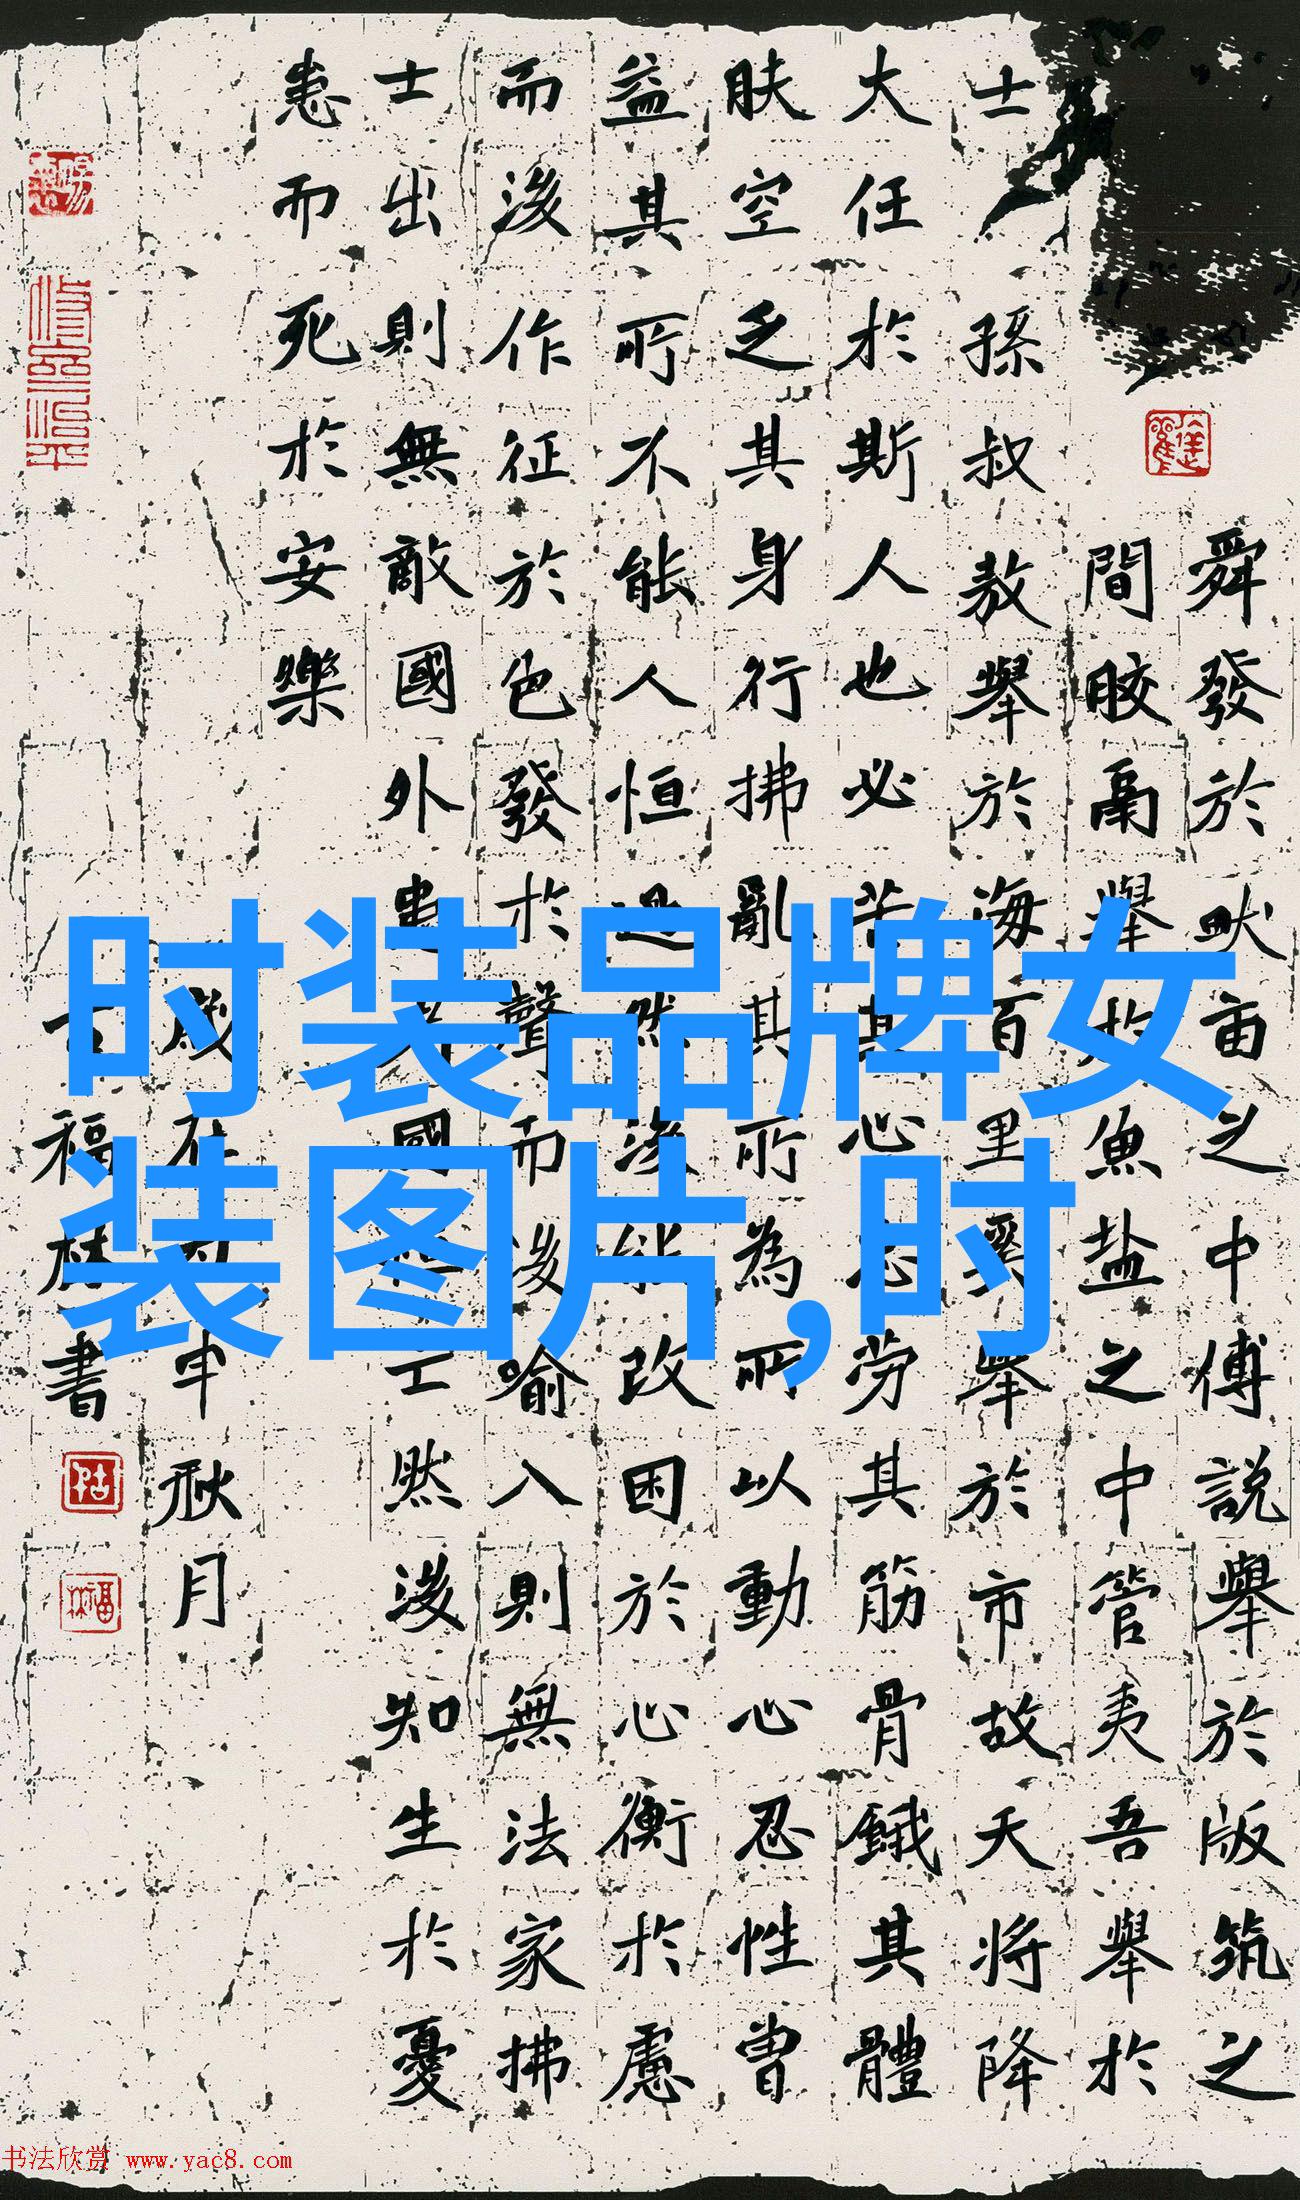 舜發於畎亩之中傅說舉於版筑之
間膠鬲舉於魚盐之中管夷吾舉於
士孫叔敖舉於海百里奚舉於市故天將降
大任於斯人也必苦其心志劳其筋骨餓其體
肤空乏其身行拂亂其所為所以動心忍性曾
益其所不能人恒過然後能改困於心衡於慮
而後作征於色發於聲而後喻入則無法家拂
士出則無敵國外患者國恒亡然後知生於憂
患而死於安樂
歲在丙申秋月
古福林書
时装品牌女
装图片,时
书法欣赏 www.yac8.com